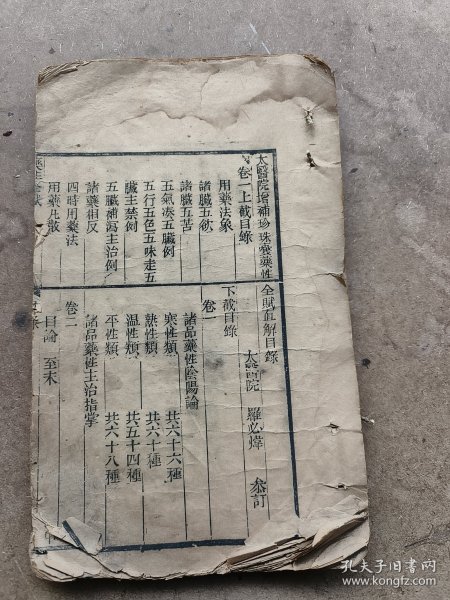 太醫院增補珍珠囊藥性全賦直解目錄
卷一上載目錄
用藥法象
諸臟五欲
諸臟五苦
五氣湊五臟例
五行五色五味走五
臟主禁例
五臟補瀉主治例
諸藥相反
四時用藥法
用藥丸散
下載目錄
太醫院 羅必煒 叅訂
卷一
諸品藥性陰陽論
寒性類 共六十六種
熱性類 共六十種
温性類 共五十四種
平性類 共六十八種
諸品藥性主治指掌
卷二
目論 至末
孔夫子旧书网
www.kongfz.com